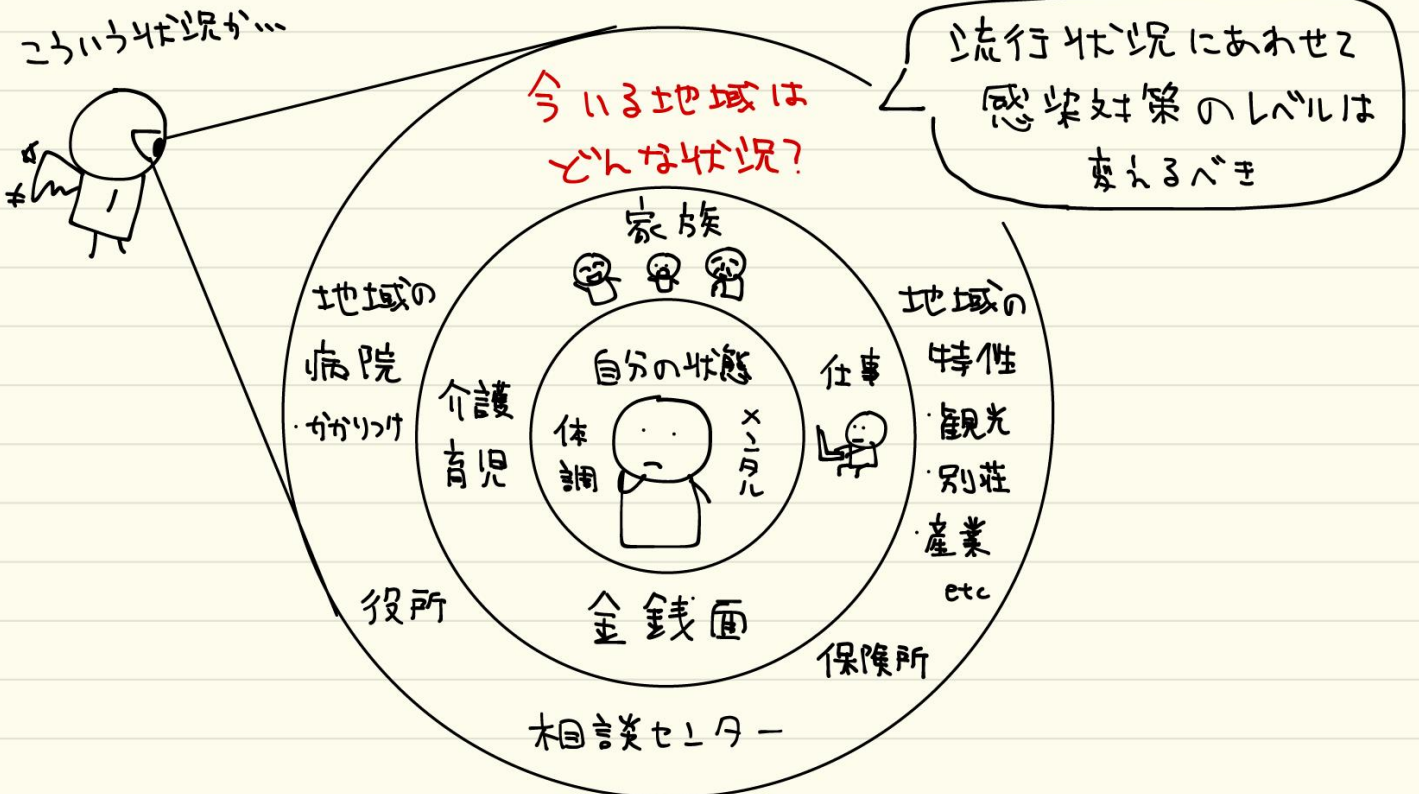 こういう状況か…
流行状況にあわせて
感染対策のレベルは
変えるべき
今いる地域は
どんな状況?
家族
地域の
病院
・かかりつけ
介護
育児
自分の状態
体調
メンタル
仕事
地域の
特性
・観光
・別荘
・産業
etc
役所
金銭面
保険所
相談センター